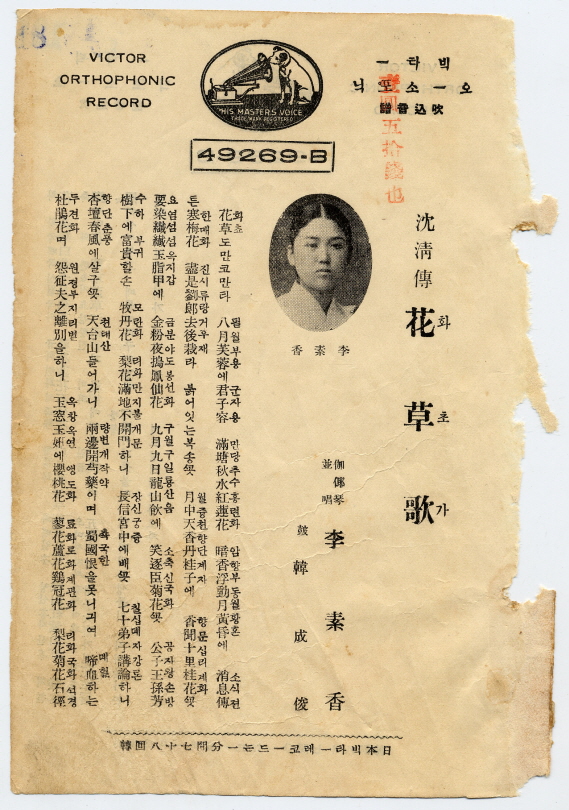 VICTOR
ORTHOPHONIC
RECORD
HIS MASTER'S VOICE
TRADE MARK REGISTERED
빅타ー
오ー소포닉
吹込音譜
壹圓五拾錢也
49269-B
沈淸傳
花草歌
화초가
伽倻琴
並唱
李素香
鼓 韓成俊
李素香
花草도만코만타 八月芙蓉에君子容 滿塘秋水紅蓮花 暗香浮動月黃昏에 消息傳
튼寒梅花 盡是劉郎去後栽라 붉어잇는복송꼿 月中天香丹桂子에 香聞十里桂花꼿
要染纖纖玉脂甲에 金粉夜搗鳳仙花 九月九日龍山飮에 笑逐臣菊花꼿 公子王孫芳
樹下에富貴할손 牧丹花 梨花滿地不開門하니 長信宮中에배꼿 七十弟子講論하니
杏壇春風에살구꼿 天台山들어가니 兩邊開芍藥이며 蜀國恨을못니긔여 啼血하는
杜鵑花며 怨征夫之離別을하니 玉窓玉姸에櫻桃花 蓼花蘆花鷄冠花 梨花菊花石徑
日本빅타ー레코ー드는一分間七十八回轉